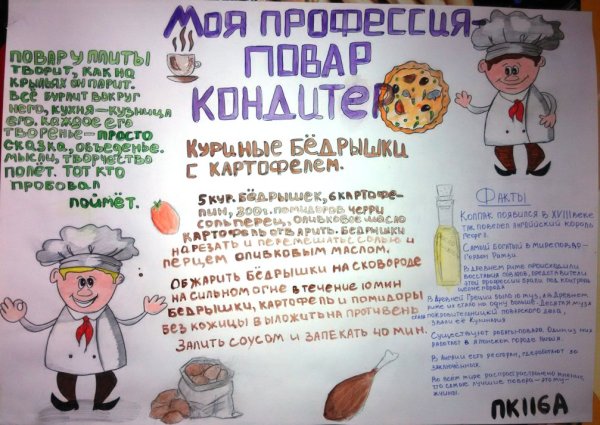 Моя профессия-
повар
кондитер
Повар у плиты
творит, как на
крыльях он парит.
Всё бурлит вокруг
него, кухня-кузница
его. Каждое его
творенье- просто
сказка, объеденье.
Мысли, творчество
полёт. Тот кто
пробовал
поймёт.
Куриные бёдрышки
с картофелем.
5 кур. бёдрышек, 6 картофе-
лин, 300г. помидоров черри
соль перец, оливковое масло
Картофель отварить. Бёдрышки
нарезать и перемешать с солью и
перцем оливковым маслом.
Обжарить бёдрышки на сковороде
на сильном огне в течение 10 мин
Бёдрышки, картофель и помидоры
без кожицы выложить на противень
Залить соусом и запекать 40 мин.
Факты
Колпак появился в XVIII веке
так повелел английский король
Самый богатый в мире повар-
Гордон Рамзи
В древнем Риме происходили
восстания поваров, представители
этой профессии брали под контроль
целые города
В Древней Греции было 9 муз, а в Древнем
Риме их стало на одну больше. Десятая муза
покровительницей поварского дела,
звали её Кулинария
Существуют роботы-повара. Один из них
работает в японском городе Нагоя.
В Англии есть ресторан, где работают 30
заключённых.
Во всём мире распространено мнение,
что самые лучшие повара-это му-
жчины.
ПК116А